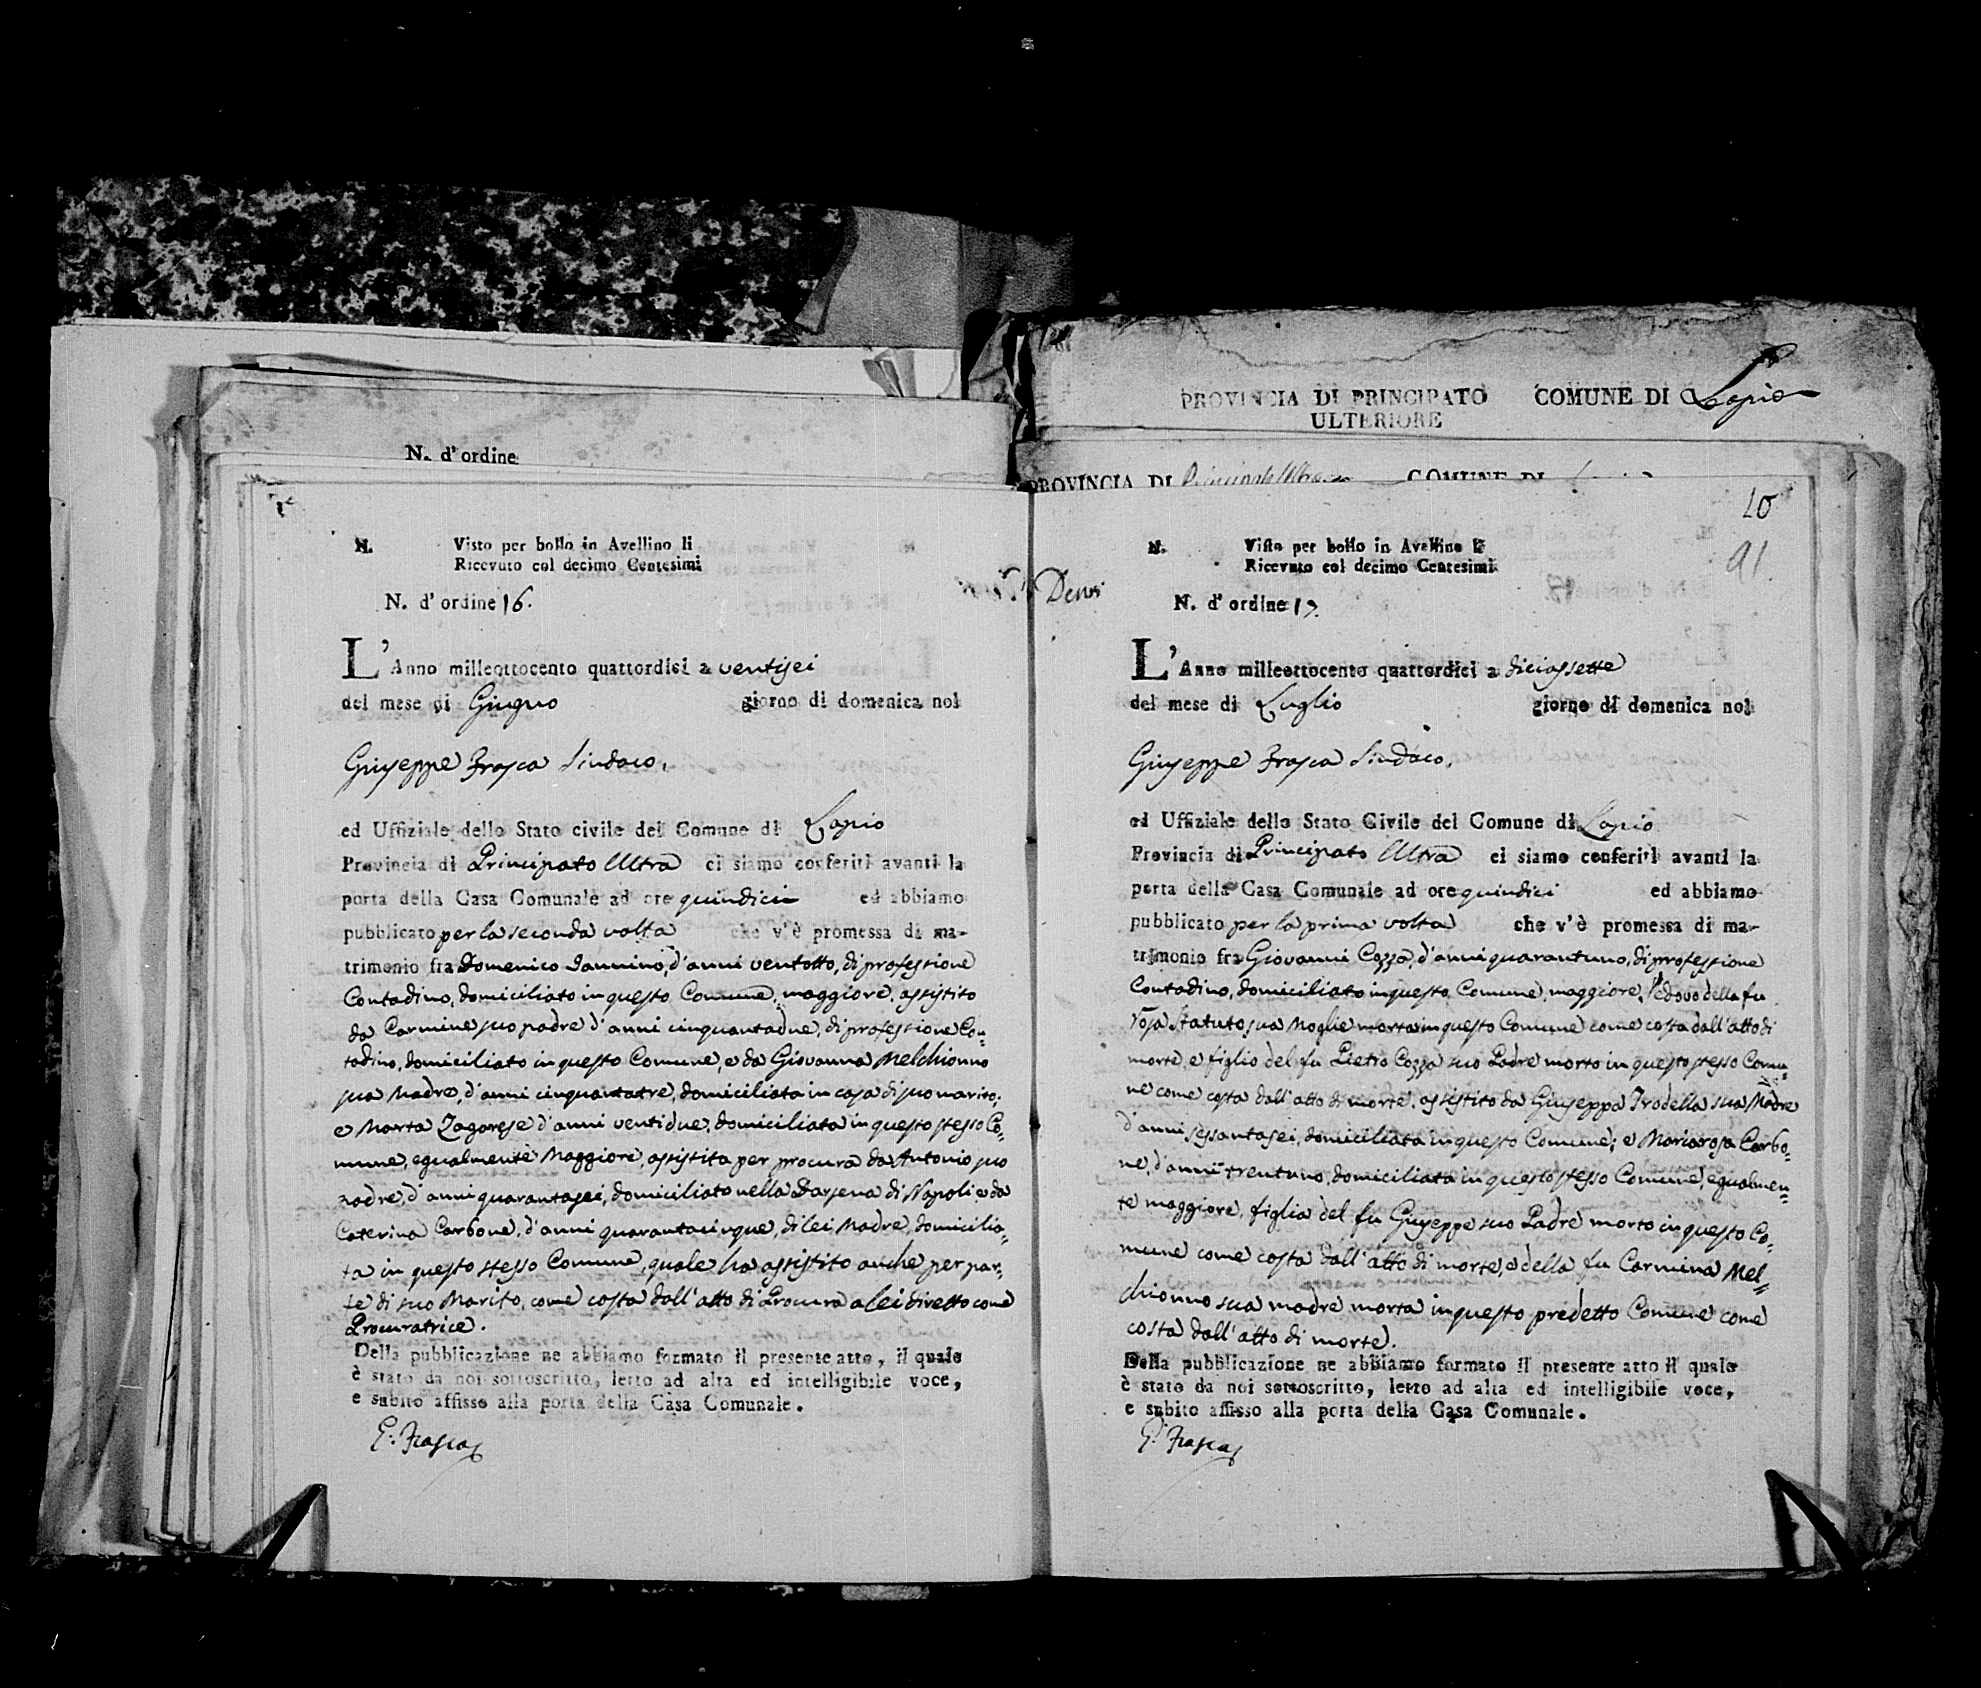 PROVINCIA DI PRINCIPATO COMUNE DI Lapio
ULTERIORE
N. d' ordine
PROVINCIA DI COMUNE DI
N. Visto per bollo in Avellino li
Ricevuto col decimo Centesimi
N. d' ordine 16.
L'Anno milleottocento quattordici a ventisei
del mese di Giugno giorno di domenica noi
Giuseppe Frasca Sindaco,
ed Uffiziale dello Stato civile del Comune di Lapio
Provincia di Principato Ultra ci siamo conferiti avanti la
porta della Casa Comunale ad ore quindici ed abbiamo
pubblicato per la seconda volta che v'è promessa di ma-
trimonio fra Domenico Iannino, d'anni ventotto, di professione
Contadino, domiciliato in questo Comune, maggiore, assistito
da Carmine suo padre d'anni cinquantadue, di professione Con-
tadino, domiciliato in questo Comune, e da Giovanna Melchionno
sua Madre, d'anni cinquantatre, domiciliata in casa di suo marito;
e Marta Zagarese d'anni ventidue, domiciliata in questo stesso Co-
mune, egualmente Maggiore, assistita per procura da Antonio suo
padre, d'anni quarantasei, domiciliato nella Darsena di Napoli e da
Caterina Carbone, d'anni quarantacinque, di lei Madre, domicilia-
ta in questo stesso Comune, quale ha assistito anche per par-
te di suo Marito, come costa dall'atto di Procura a lei diretto come
Procuratrice.
Della pubblicazione ne abbiamo formato il presente atto, il quale
è stato da noi sottoscritto, letto ad alta ed intelligibile voce,
e subito affisso alla porta della Casa Comunale.
G. Frasca
10
91
N. Visto per bollo in Avellino li
Ricevuto col decimo Centesimi
N. d' ordine 17.
L'Anno milleottocento quattordici a diciassette
del mese di Luglio giorno di domenica noi
Giuseppe Frasca Sindaco,
ed Uffiziale dello Stato Civile del Comune di Lapio
Provincia di Principato Ultra ci siamo conferiti avanti la
porta della Casa Comunale ad ore quindici ed abbiamo
pubblicato per la prima volta che v'è promessa di ma-
trimonio fra Giovanni Cozza, d'anni quarantuno, di professione
Contadino, domiciliato in questo Comune, maggiore, Vedovo della fu
Rosa Statuto sua Moglie morta in questo Comune come costa dall'atto di
morte, e figlio del fu Pietro Cozza suo Padre morto in questo stesso Comu-
ne come costa dall'atto di morte, assistito da Giuseppa Trodella sua Madre
d'anni sessantasei, domiciliata in questo Comune; e Mariarosa Carbo-
ne, d'anni trentuno, domiciliata in questo stesso Comune, egualmen-
te maggiore, figlia del fu Giuseppe suo Padre morto in questo Co-
mune come costa dall'atto di morte, e della fu Carmina Mel-
chionno sua madre morta in questo predetto Comune come
costa dall'atto di morte.
Della pubblicazione ne abbiamo formato il presente atto il quale
è stato da noi sottoscritto, letto ad alta ed intelligibile voce,
e subito affisso alla porta della Casa Comunale.
G. Frasca